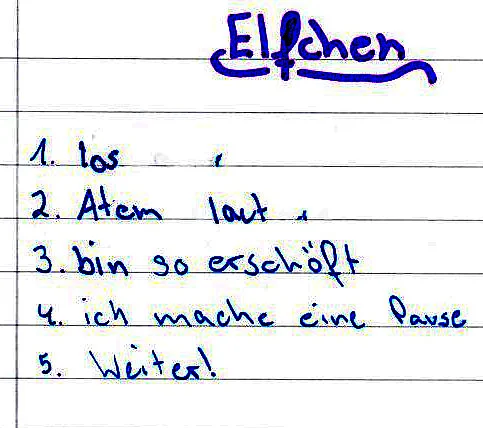 Elfchen
1. los
2. Atem laut
3. bin so erschöft
4. ich mache eine Pause
5. Weiter!